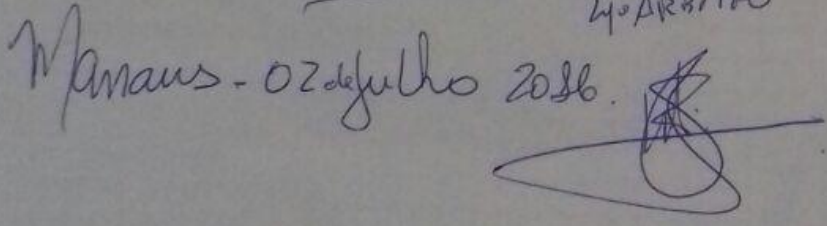 4º ARBITRO
Manaus - 02 de Julho 2016.